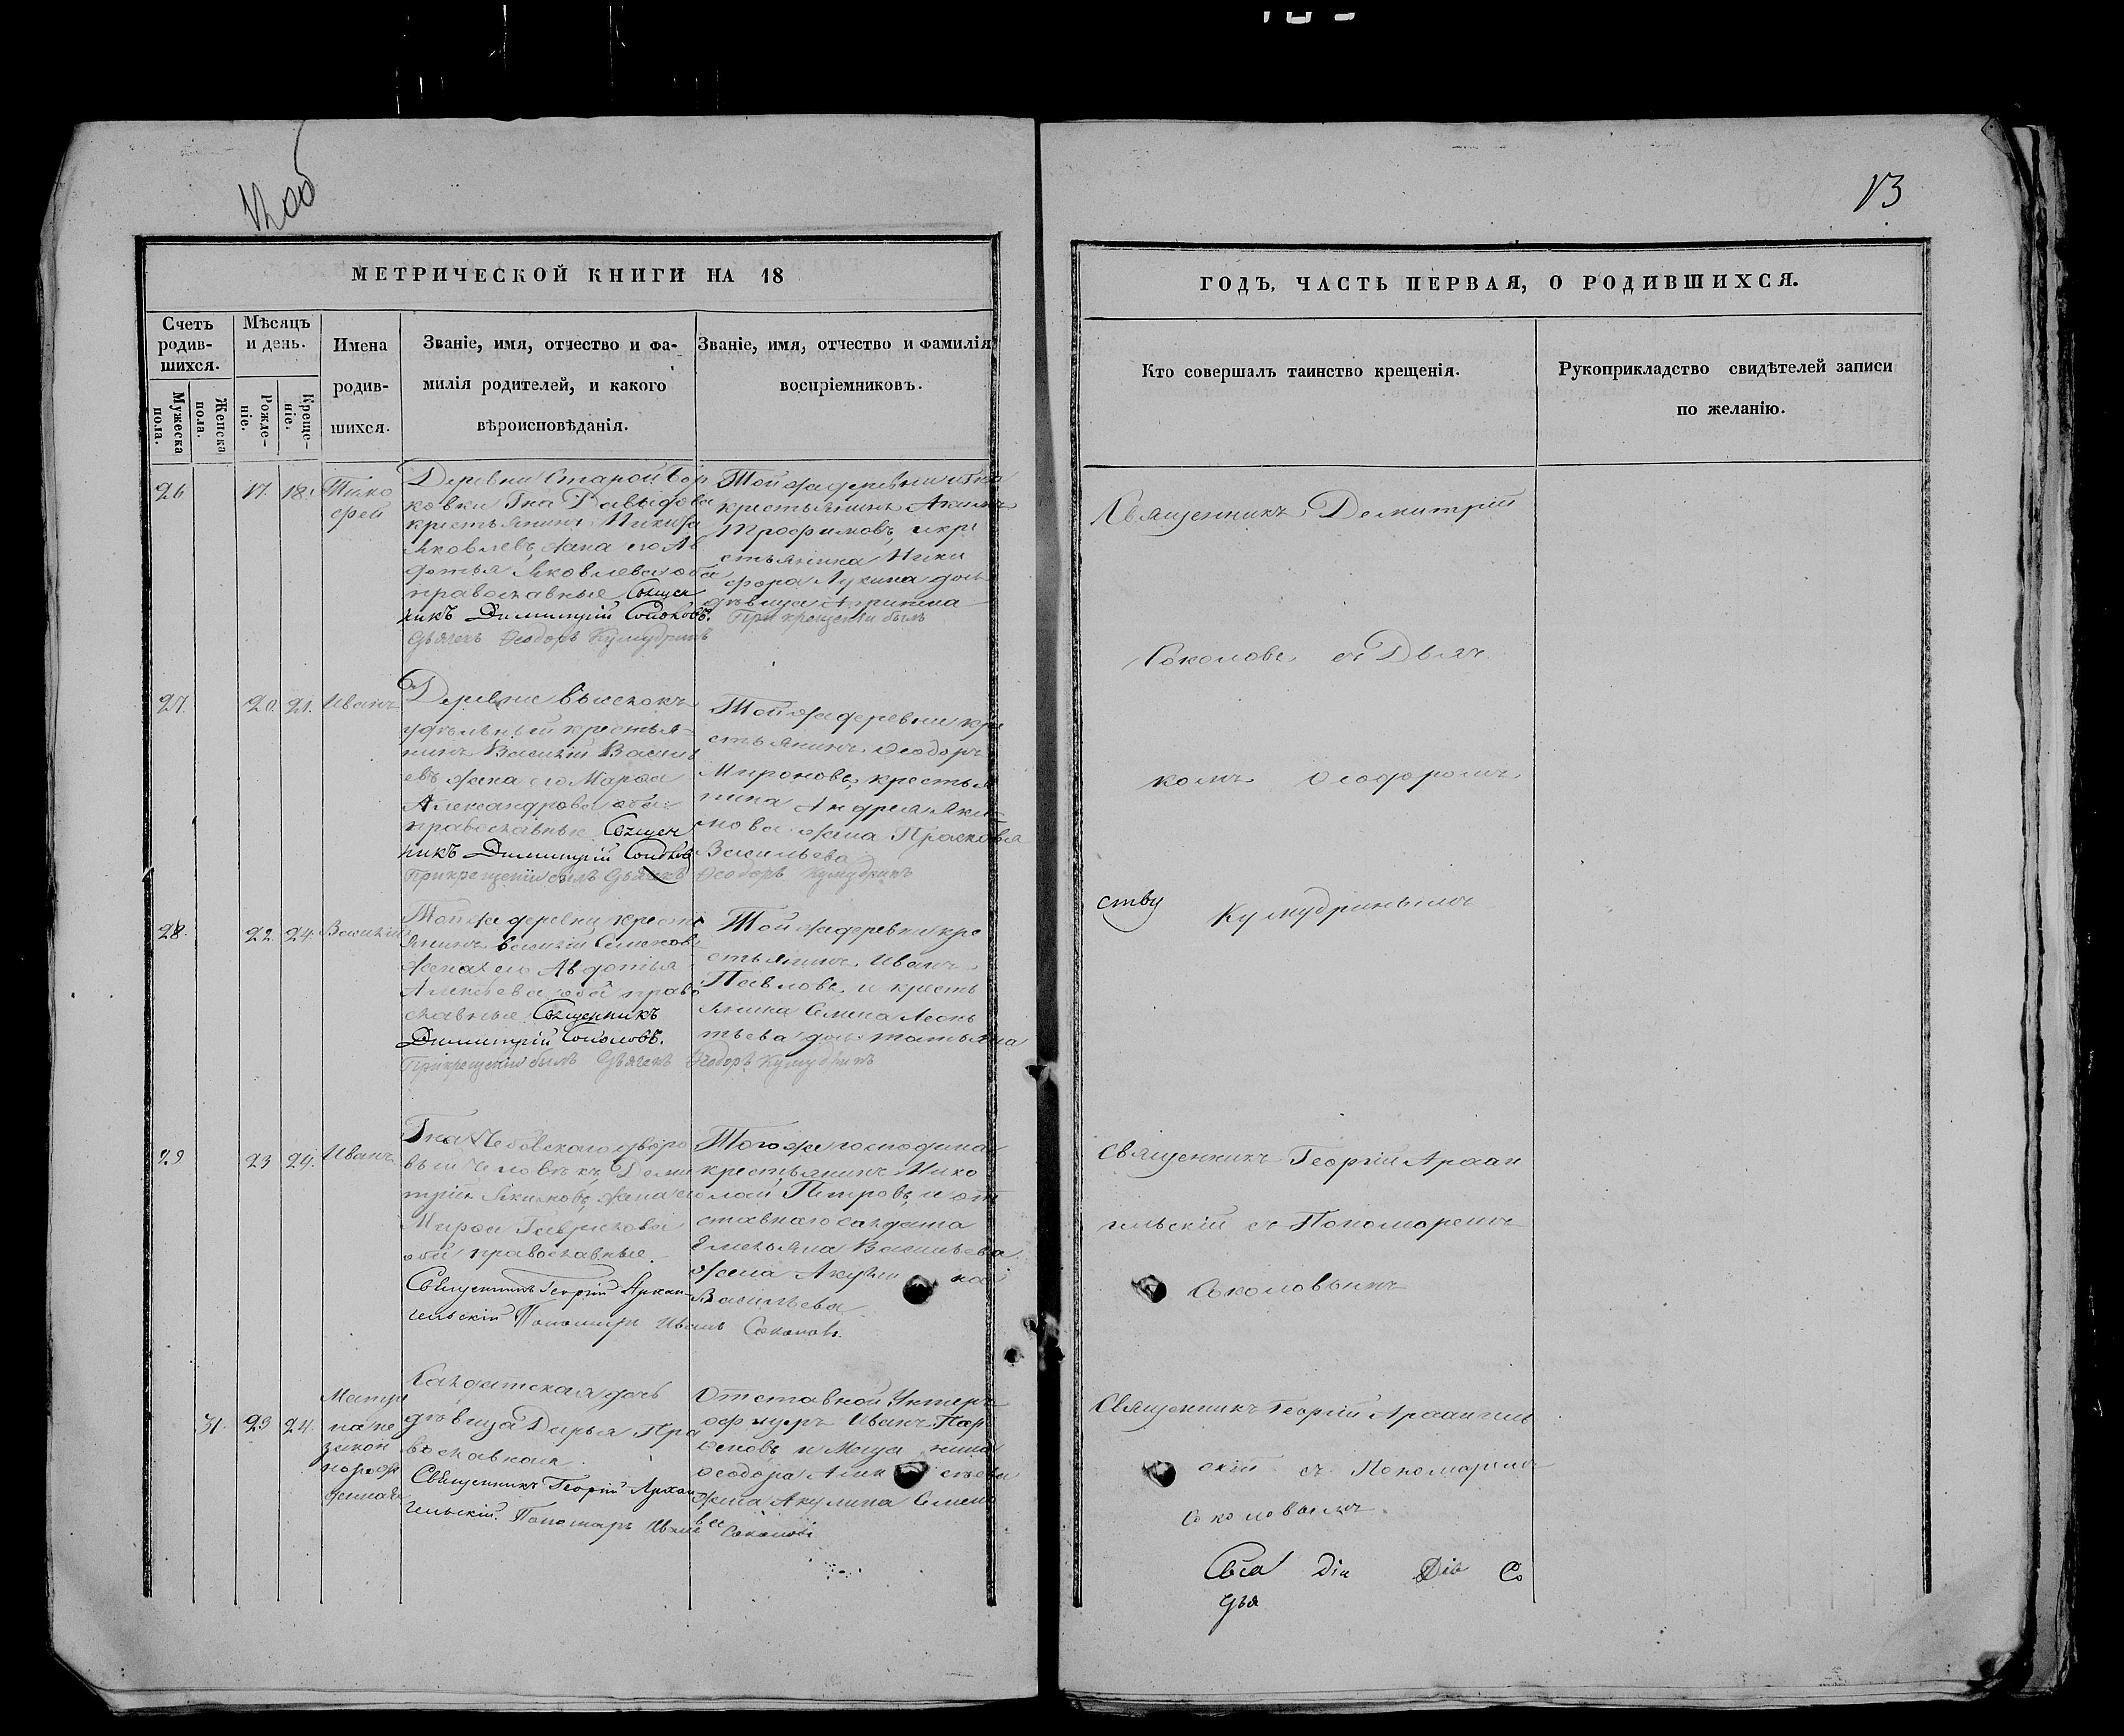 12об
МЕТРИЧЕСКОЙ КНИГИ НА 18
Счетъ родив-шихся.
Мужеска пола.
Женска пола.
Мѣсяцъ и день.
Рожде-ніе.
Креще-ніе.
Имена родив-шихся.
Званіе, имя, отчество и фа-
милія родителей, и какого
вѣроисповѣданія.
Званіе, имя, отчество и фамилія
воспріемниковъ.
26
17.
18.
Тимо
фей
Деревни Старой Бор
ковки Гна Давыдова
крестьянинъ Никита
Яковлевъ, жена его Ав
дотья Яковлева оба
православные Священ
никъ Димитрій Соколовъ.
Дьячекъ Ѳеодоръ Кумудринъ
Той же деревни
крестьянинъ Акимъ
Трофимовъ, и кре
стьянина Ники
фора Лукина дочь
дѣвица
При крещеніи былъ
27.
20.
21.
Иванъ
Деревни
удѣльный крестья-
нинъ Василій Василь
евъ жена его Марѳа
Александрова оба
православные Священ
никъ Димитрій Соколовъ
При крещеніи былъ Дьячекъ Ѳеодоръ Кумудринъ
Той же деревни кре
стьянинъ Ѳеодоръ
Мироновъ, крестья
нина Андрея Яки
мова жена Прасковья
Васильева
28.
22.
24.
Василій
Той же деревни кресть
янинъ Василій Семеновъ
жена его Авдотья
Алексѣева оба право
славные Священникъ
Димитрій Соколовъ.
При крещеніи былъ Дьячекъ Ѳеодоръ Кумудринъ
Той же деревни кре
стьянинъ Иванъ
Павловъ и кресть
янина Семена Леонь
тьева дочь Татьяна
29
23
24.
Иванъ
Гна дворо
вый человѣкъ Дими
трій Якимовъ, жена его
Марѳа Гаврилова
оба православные
Священникъ Георгій Архан-
гельскій Пономарь Иванъ Соколовъ.
Того же господина
крестьянинъ Нико
лай Петровъ, и от
ставнаго солдата
Емельяна Васильева
жена
Васильева
31.
23
24.
Матре
на не
закон
но рож
денная
Солдатская дочь
дѣвица Дарья Пра
вославная.
Священникъ Георгій Архан
гельскій. Пономарь Иванъ Соколовъ
Отставной Унтеръ
офицеръ Иванъ Пар
ѳеновъ и
Ѳеодора
жена Акулина Семено
ва
13
ГОДЪ, ЧАСТЬ ПЕРВАЯ, О РОДИВШИХСЯ.
Кто совершалъ таинство крещенія.
Рукоприкладство свидѣтелей записи
по желанію.
Священникъ Димитрій
Соколовъ съ Дьяч
комъ Ѳеодоромъ
ству Кумудринымъ
Священникъ Георгій Архан
гельскій съ Пономаремъ
Соколовымъ
Священникъ Георгій Архангель
скій съ Пономаремъ
Соколовымъ.